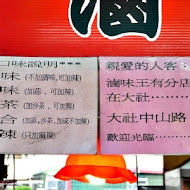 滷
口味說明***
味(不加滷味,可加辣)
味(加蒜,可加辣)
茶(加沙茶,可加辣)
合(加蒜,沙茶,加或不加辣)
辣(只加麻辣)
親愛的人客:
滷味王有分店
在大社……
大社中山路
歡迎光臨……